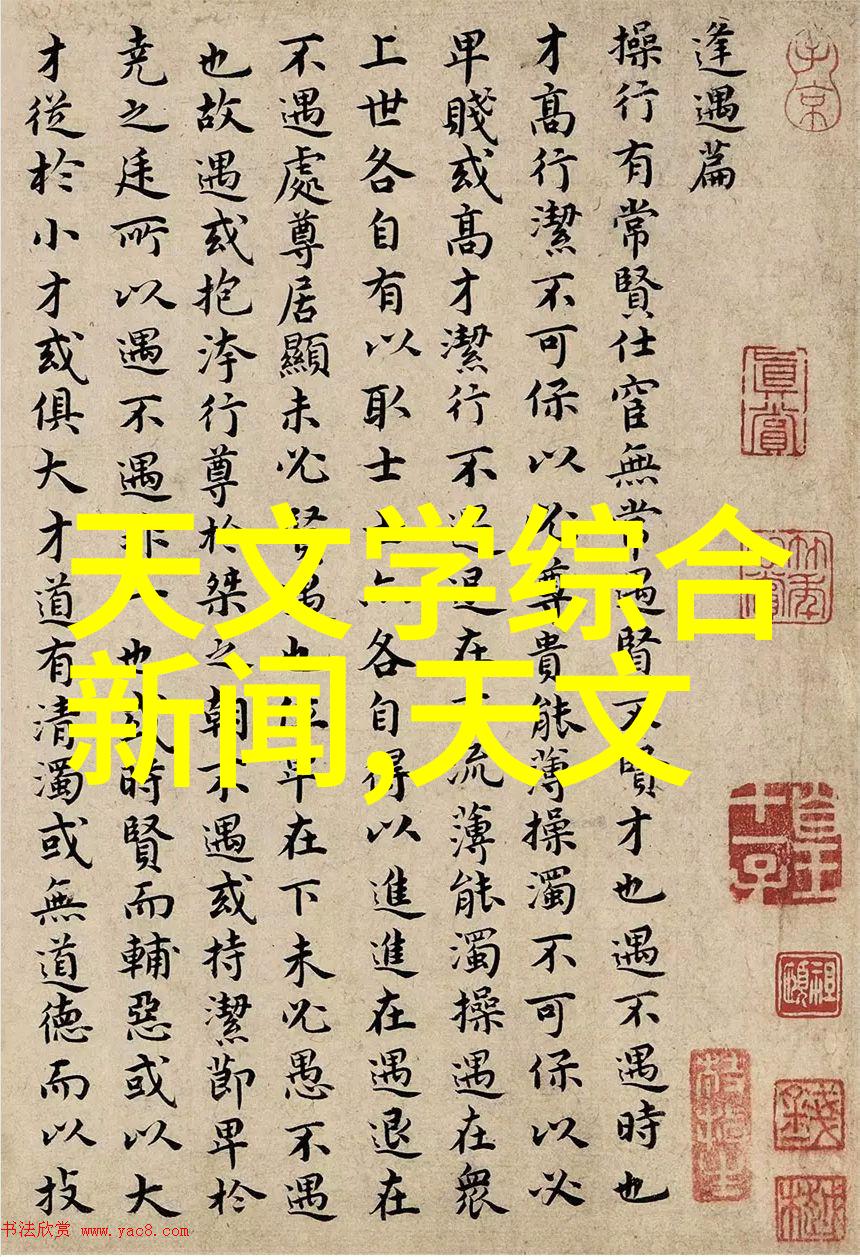 逢遇篇
操行有常賢仕宦無常遇賢不賢才也遇不遇時也
才高行潔不可保以必尊貴能薄操濁不可保以必
卑賤或高才潔行不遇退在下流薄能濁操遇在衆
上世各自有以取士士亦各自得以進進在遇退在
不遇處尊居顯未必賢遇也位卑在下未必愚不遇
也故遇或抱洿行尊於桀之朝不遇或持潔節卑於
堯之廷所以遇不遇非一也或時賢而輔惡或以大
才從於小才或俱大才道有清濁或無道德而以技
天文学综合
新闻,天文
真賞
書法欣赏 www.yac8.com